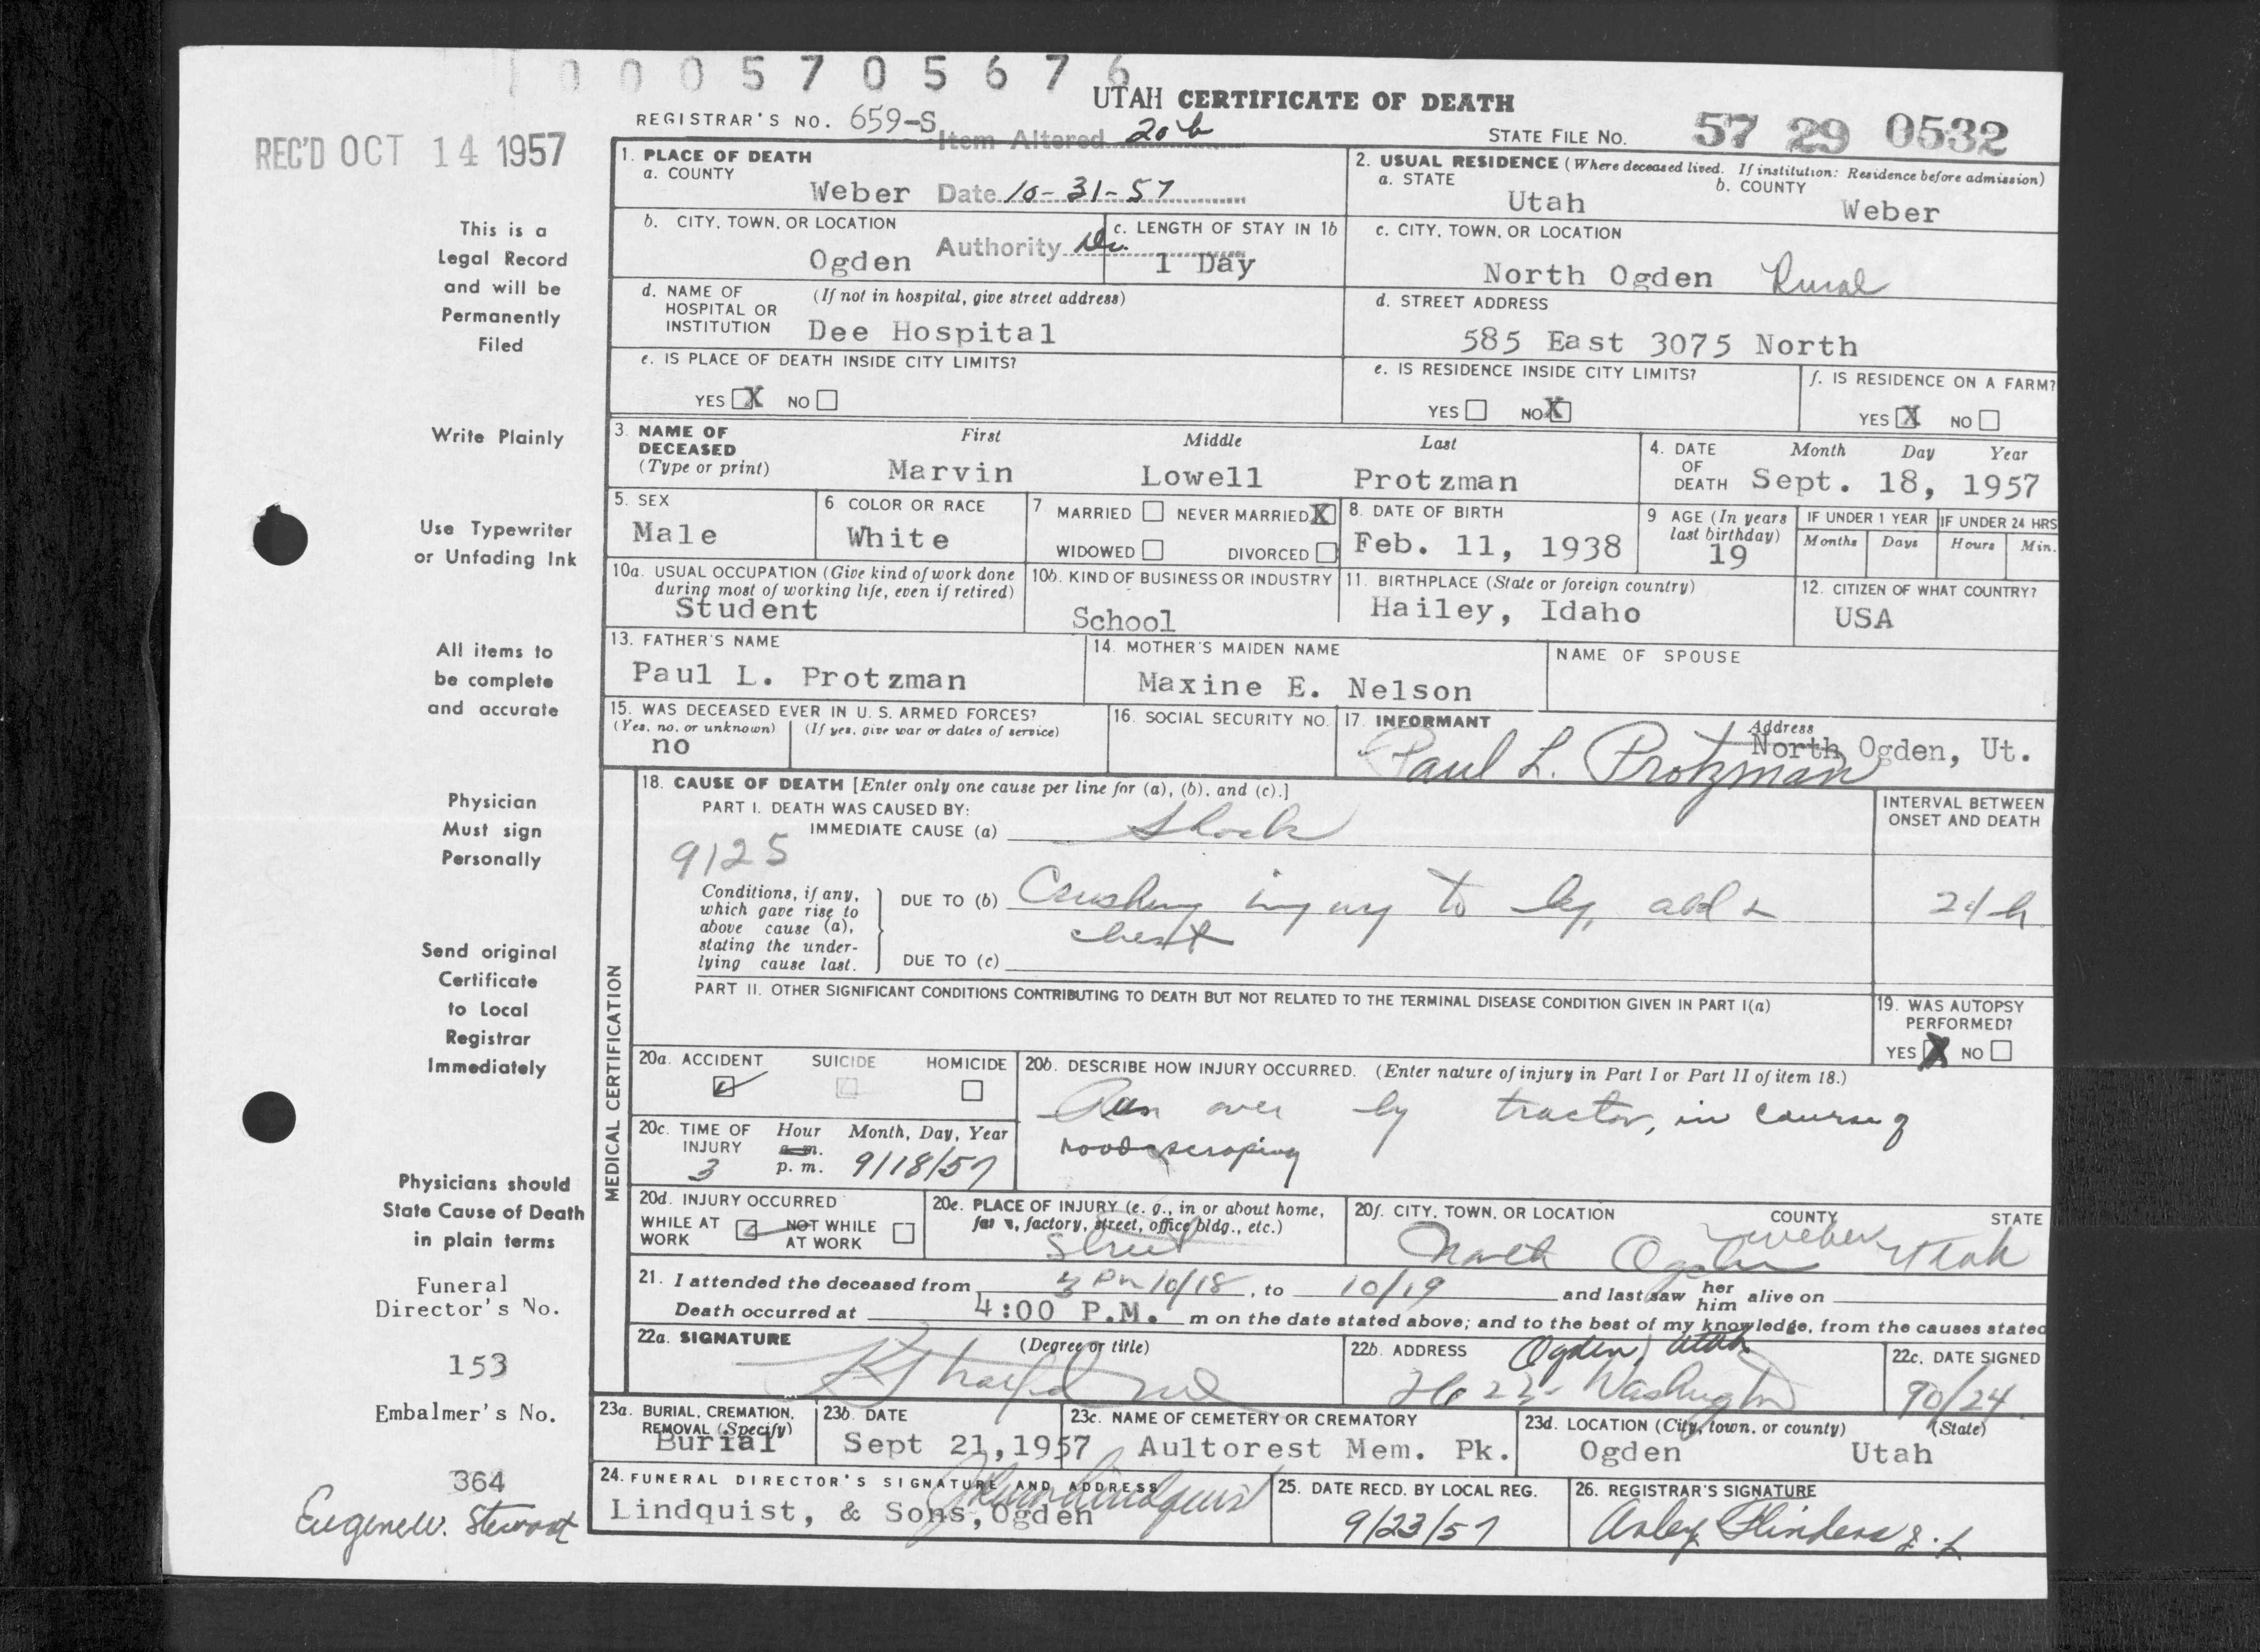 1 0 0 0 5 7 0 5 6 7 6
UTAH CERTIFICATE OF DEATH
REGISTRAR'S NO. 659-S
Item Altered 20b
STATE FILE NO. 57 29 0532
REC'D OCT 14 1957
1. PLACE OF DEATH
a. COUNTY
Weber
Date 10-31-57
2. USUAL RESIDENCE (Where deceased lived. If institution: Residence before admission)
a. STATE
Utah
b. COUNTY
Weber
b. CITY, TOWN, OR LOCATION
Ogden
Authority Dr.
c. LENGTH OF STAY IN 1b
1 Day
c. CITY, TOWN, OR LOCATION
North Ogden Rural
d. NAME OF HOSPITAL OR INSTITUTION
(If not in hospital, give street address)
Dee Hospital
d. STREET ADDRESS
585 East 3075 North
e. IS PLACE OF DEATH INSIDE CITY LIMITS?
YES X NO
e. IS RESIDENCE INSIDE CITY LIMITS?
YES NO X
f. IS RESIDENCE ON A FARM?
YES X NO
3. NAME OF DECEASED
(Type or print)
First Middle Last
Marvin Lowell Protzman
4. DATE OF DEATH
Month Day Year
Sept. 18, 1957
5. SEX
Male
6 COLOR OR RACE
White
7 MARRIED NEVER MARRIED X
WIDOWED DIVORCED
8. DATE OF BIRTH
Feb. 11, 1938
9 AGE (In years last birthday)
19
IF UNDER 1 YEAR
Months Days
IF UNDER 24 HRS
Hours Min.
10a. USUAL OCCUPATION (Give kind of work done during most of working life, even if retired)
Student
10b. KIND OF BUSINESS OR INDUSTRY
School
11. BIRTHPLACE (State or foreign country)
Hailey, Idaho
12. CITIZEN OF WHAT COUNTRY?
USA
13. FATHER'S NAME
Paul L. Protzman
14. MOTHER'S MAIDEN NAME
Maxine E. Nelson
NAME OF SPOUSE
15. WAS DECEASED EVER IN U. S. ARMED FORCES?
(Yes, no, or unknown) (If yes, give war or dates of service)
no
16. SOCIAL SECURITY NO.
17. INFORMANT
Paul L. Protzman
Address
North Ogden, Ut.
18. CAUSE OF DEATH [Enter only one cause per line for (a), (b), and (c).]
PART I. DEATH WAS CAUSED BY:
IMMEDIATE CAUSE (a) Shock
INTERVAL BETWEEN ONSET AND DEATH
9125
Conditions, if any, which gave rise to above cause (a), stating the underlying cause last.
DUE TO (b) Crushing injury to leg, abd &
chest
DUE TO (c)
PART II. OTHER SIGNIFICANT CONDITIONS CONTRIBUTING TO DEATH BUT NOT RELATED TO THE TERMINAL DISEASE CONDITION GIVEN IN PART I(a)
19. WAS AUTOPSY PERFORMED?
YES X NO
MEDICAL CERTIFICATION
20a. ACCIDENT SUICIDE HOMICIDE
20b. DESCRIBE HOW INJURY OCCURRED. (Enter nature of injury in Part I or Part II of item 18.)
Run over by tractor, in course of
road scraping
20c. TIME OF INJURY
Hour Month, Day, Year
a. m.
3 p. m. 9/18/57
20d. INJURY OCCURRED
WHILE AT WORK NOT WHILE AT WORK
20e. PLACE OF INJURY (e. g., in or about home, farm, factory, street, office bldg., etc.)
Street
20f. CITY, TOWN, OR LOCATION COUNTY STATE
North Ogden Weber Utah
21. I attended the deceased from 3 Pm 10/18, to 10/19 and last saw her him alive on
Death occurred at 4:00 P.M. m on the date stated above; and to the best of my knowledge, from the causes stated
22a. SIGNATURE
(Degree or title)
22b. ADDRESS
Ogden, Utah
Washington
22c. DATE SIGNED
23a. BURIAL, CREMATION, REMOVAL (Specify)
Burial
23b. DATE
Sept 21, 1957
23c. NAME OF CEMETERY OR CREMATORY
Aultorest Mem. Pk.
23d. LOCATION (City, town, or county) (State)
Ogden Utah
24. FUNERAL DIRECTOR'S SIGNATURE AND ADDRESS
Lindquist, & Sons, Ogden
25. DATE RECD. BY LOCAL REG.
9/23/57
26. REGISTRAR'S SIGNATURE
Arley Flinders
This is a
Legal Record
and will be
Permanently
Filed
Write Plainly
Use Typewriter
or Unfading Ink
All items to
be complete
and accurate
Physician
Must sign
Personally
Send original
Certificate
to Local
Registrar
Immediately
Physicians should
State Cause of Death
in plain terms
Funeral
Director's No.
153
Embalmer's No.
364
Eugene W. Stewart